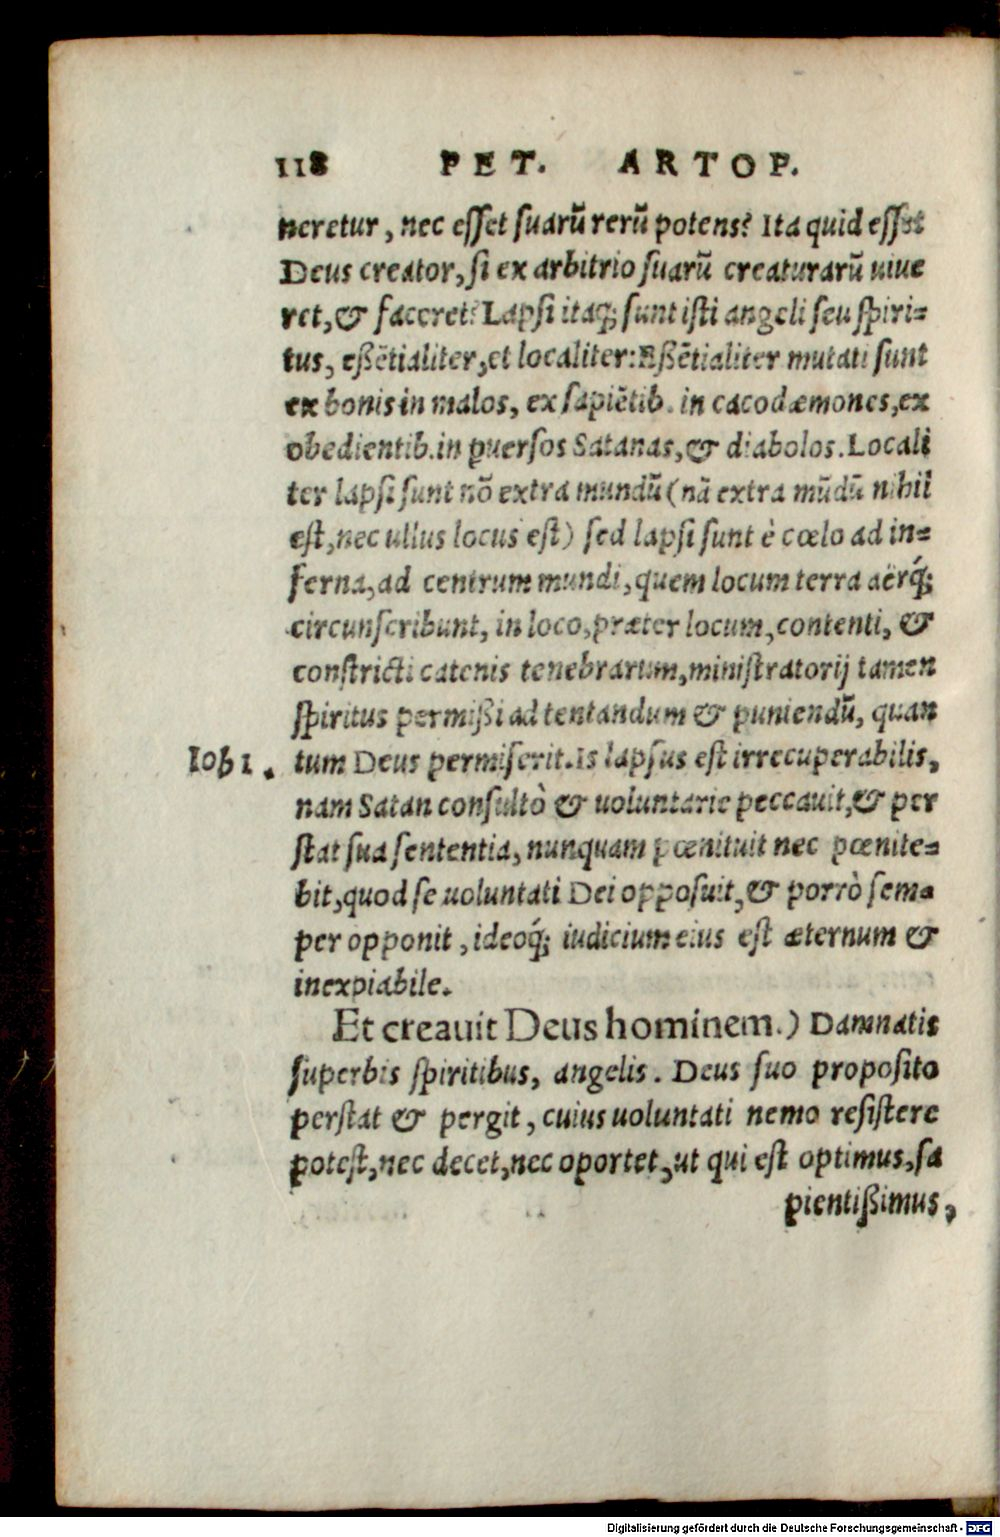 118 PET. ARTOP.
neretur, nec esset suarũ rerũ potens? Ita quid esset
Deus creator, si ex arbitrio suarũ creaturarũ uiue
ret, & faceret? Lapsi itaq; sunt isti angeli seu spiri=
tus, eßẽtialiter, et localiter: Eßẽtialiter mutati sunt
ex bonis in malos, ex sapiẽtib. in cacodæmones, ex
obedientib. in ꝑuersos Satanas, & diabolos. Locali
ter lapsi sunt nõ extra mundũ (nã extra mũdũ nihil
est, nec ullus locus est) sed lapsi sunt è cœlo ad in=
ferna, ad centrum mundi, quem locum terra aërq́;
circunscribunt, in loco, præter locum, contenti, &
constricti catenis tenebrarum, ministratorij tamen
spiritus permißi ad tentandum & puniendũ, quan
Iob 1. tum Deus permiserit. Is lapsus est irrecuperabilis,
nam Satan consultò & uoluntarie peccauit, & per
stat sua sententia, nunquam pœnituit nec pœnite=
bit, quod se uoluntati Dei opposuit, & porrò sema
per opponit, ideoq́; iudicium eius est æternum &
inexpiabile.
Et creauit Deus hominem.) Damnatis
superbis spiritibus, angelis. Deus suo proposito
perstat & pergit, cuius uoluntati nemo resistere
potest, nec decet, nec oportet, ut qui est optimus, sa
pientißimus,
Digitalisierung gefördert durch die Deutsche Forschungsgemeinschaft - DFG